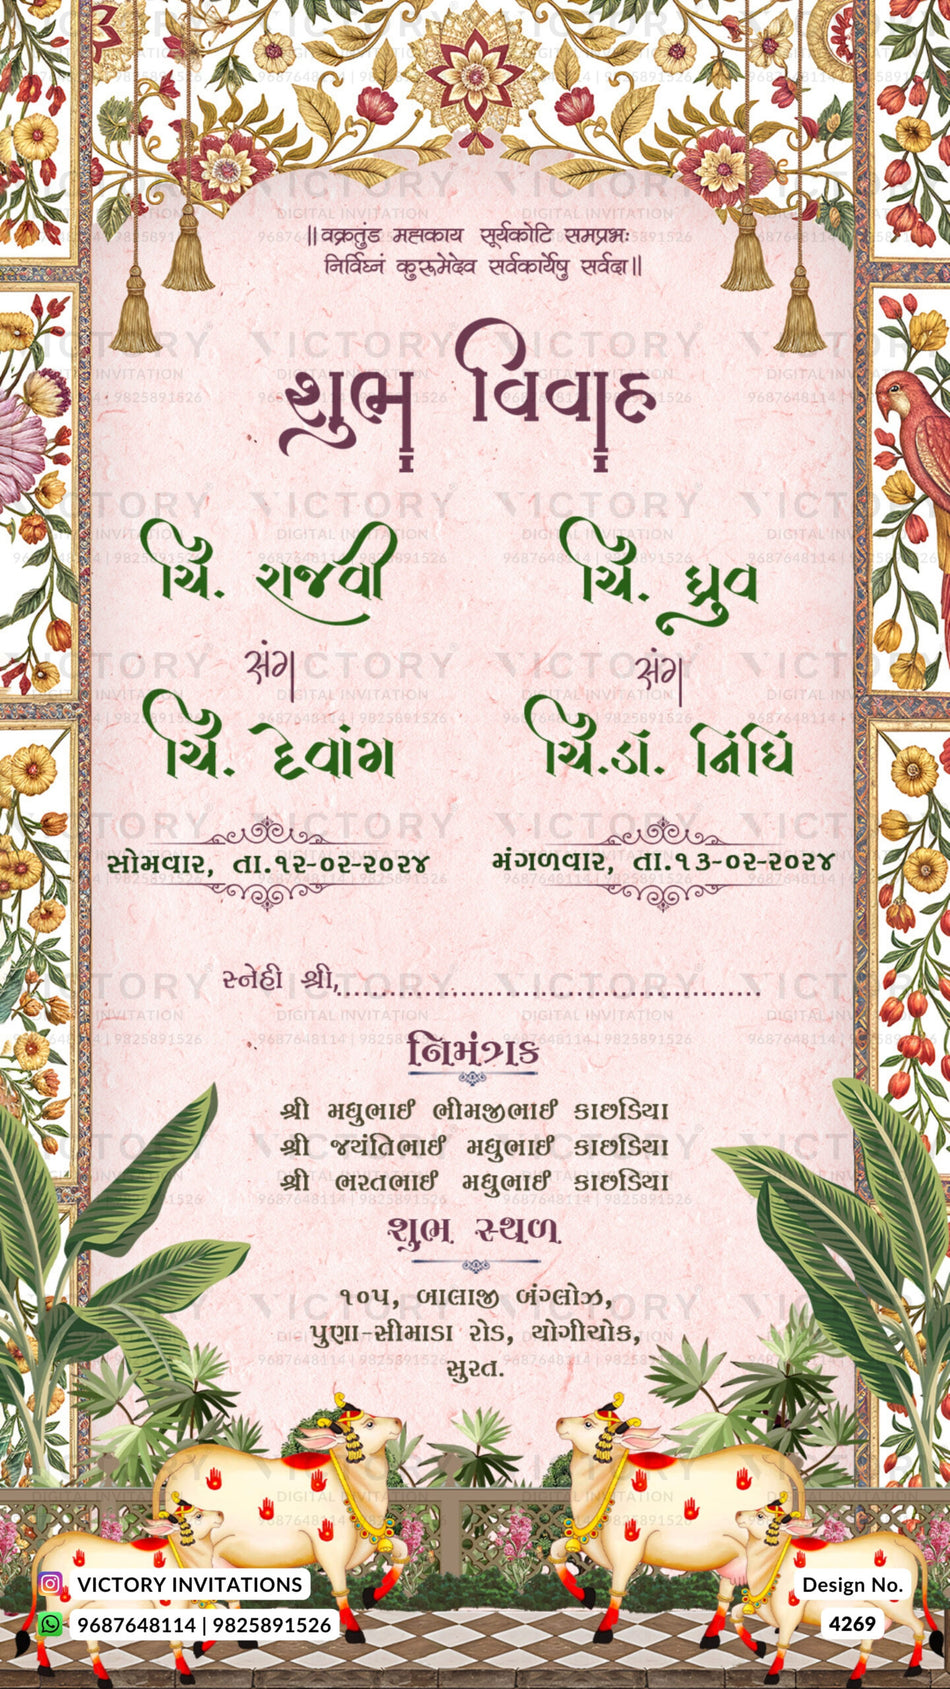 ॥ वक्रतुंड महाकाय सूर्यकोटि समप्रभः
निर्विघ्नं कुरूमेदेव सर्वकार्येषु सर्वदा ॥
શુભ વિવાહ
ચિ. રાજવી
સંગ
ચિ. દેવાંગ
સોમવાર, તા.૧૨-૦૨-૨૦૨૪
ચિ. ધ્રુવ
સંગ
ચિ.ડૉ. નિધિ
મંગળવાર, તા.૧૩-૦૨-૨૦૨૪
સ્નેહી શ્રી,..........................................................
નિમંત્રક
શ્રી મધુભાઈ ભીમજીભાઈ કાછડિયા
શ્રી જયંતિભાઈ મધુભાઈ કાછડિયા
શ્રી ભરતભાઈ મધુભાઈ કાછડિયા
શુભ સ્થળ
૧૦૫, બાલાજી બંગ્લોઝ,
પુણા-સીમાડા રોડ, યોગીચોક,
સુરત.
VICTORY INVITATIONS
9687648114 | 9825891526
Design No.
4269
VICTORY
DIGITAL INVITATION
9687648114 | 9825891526